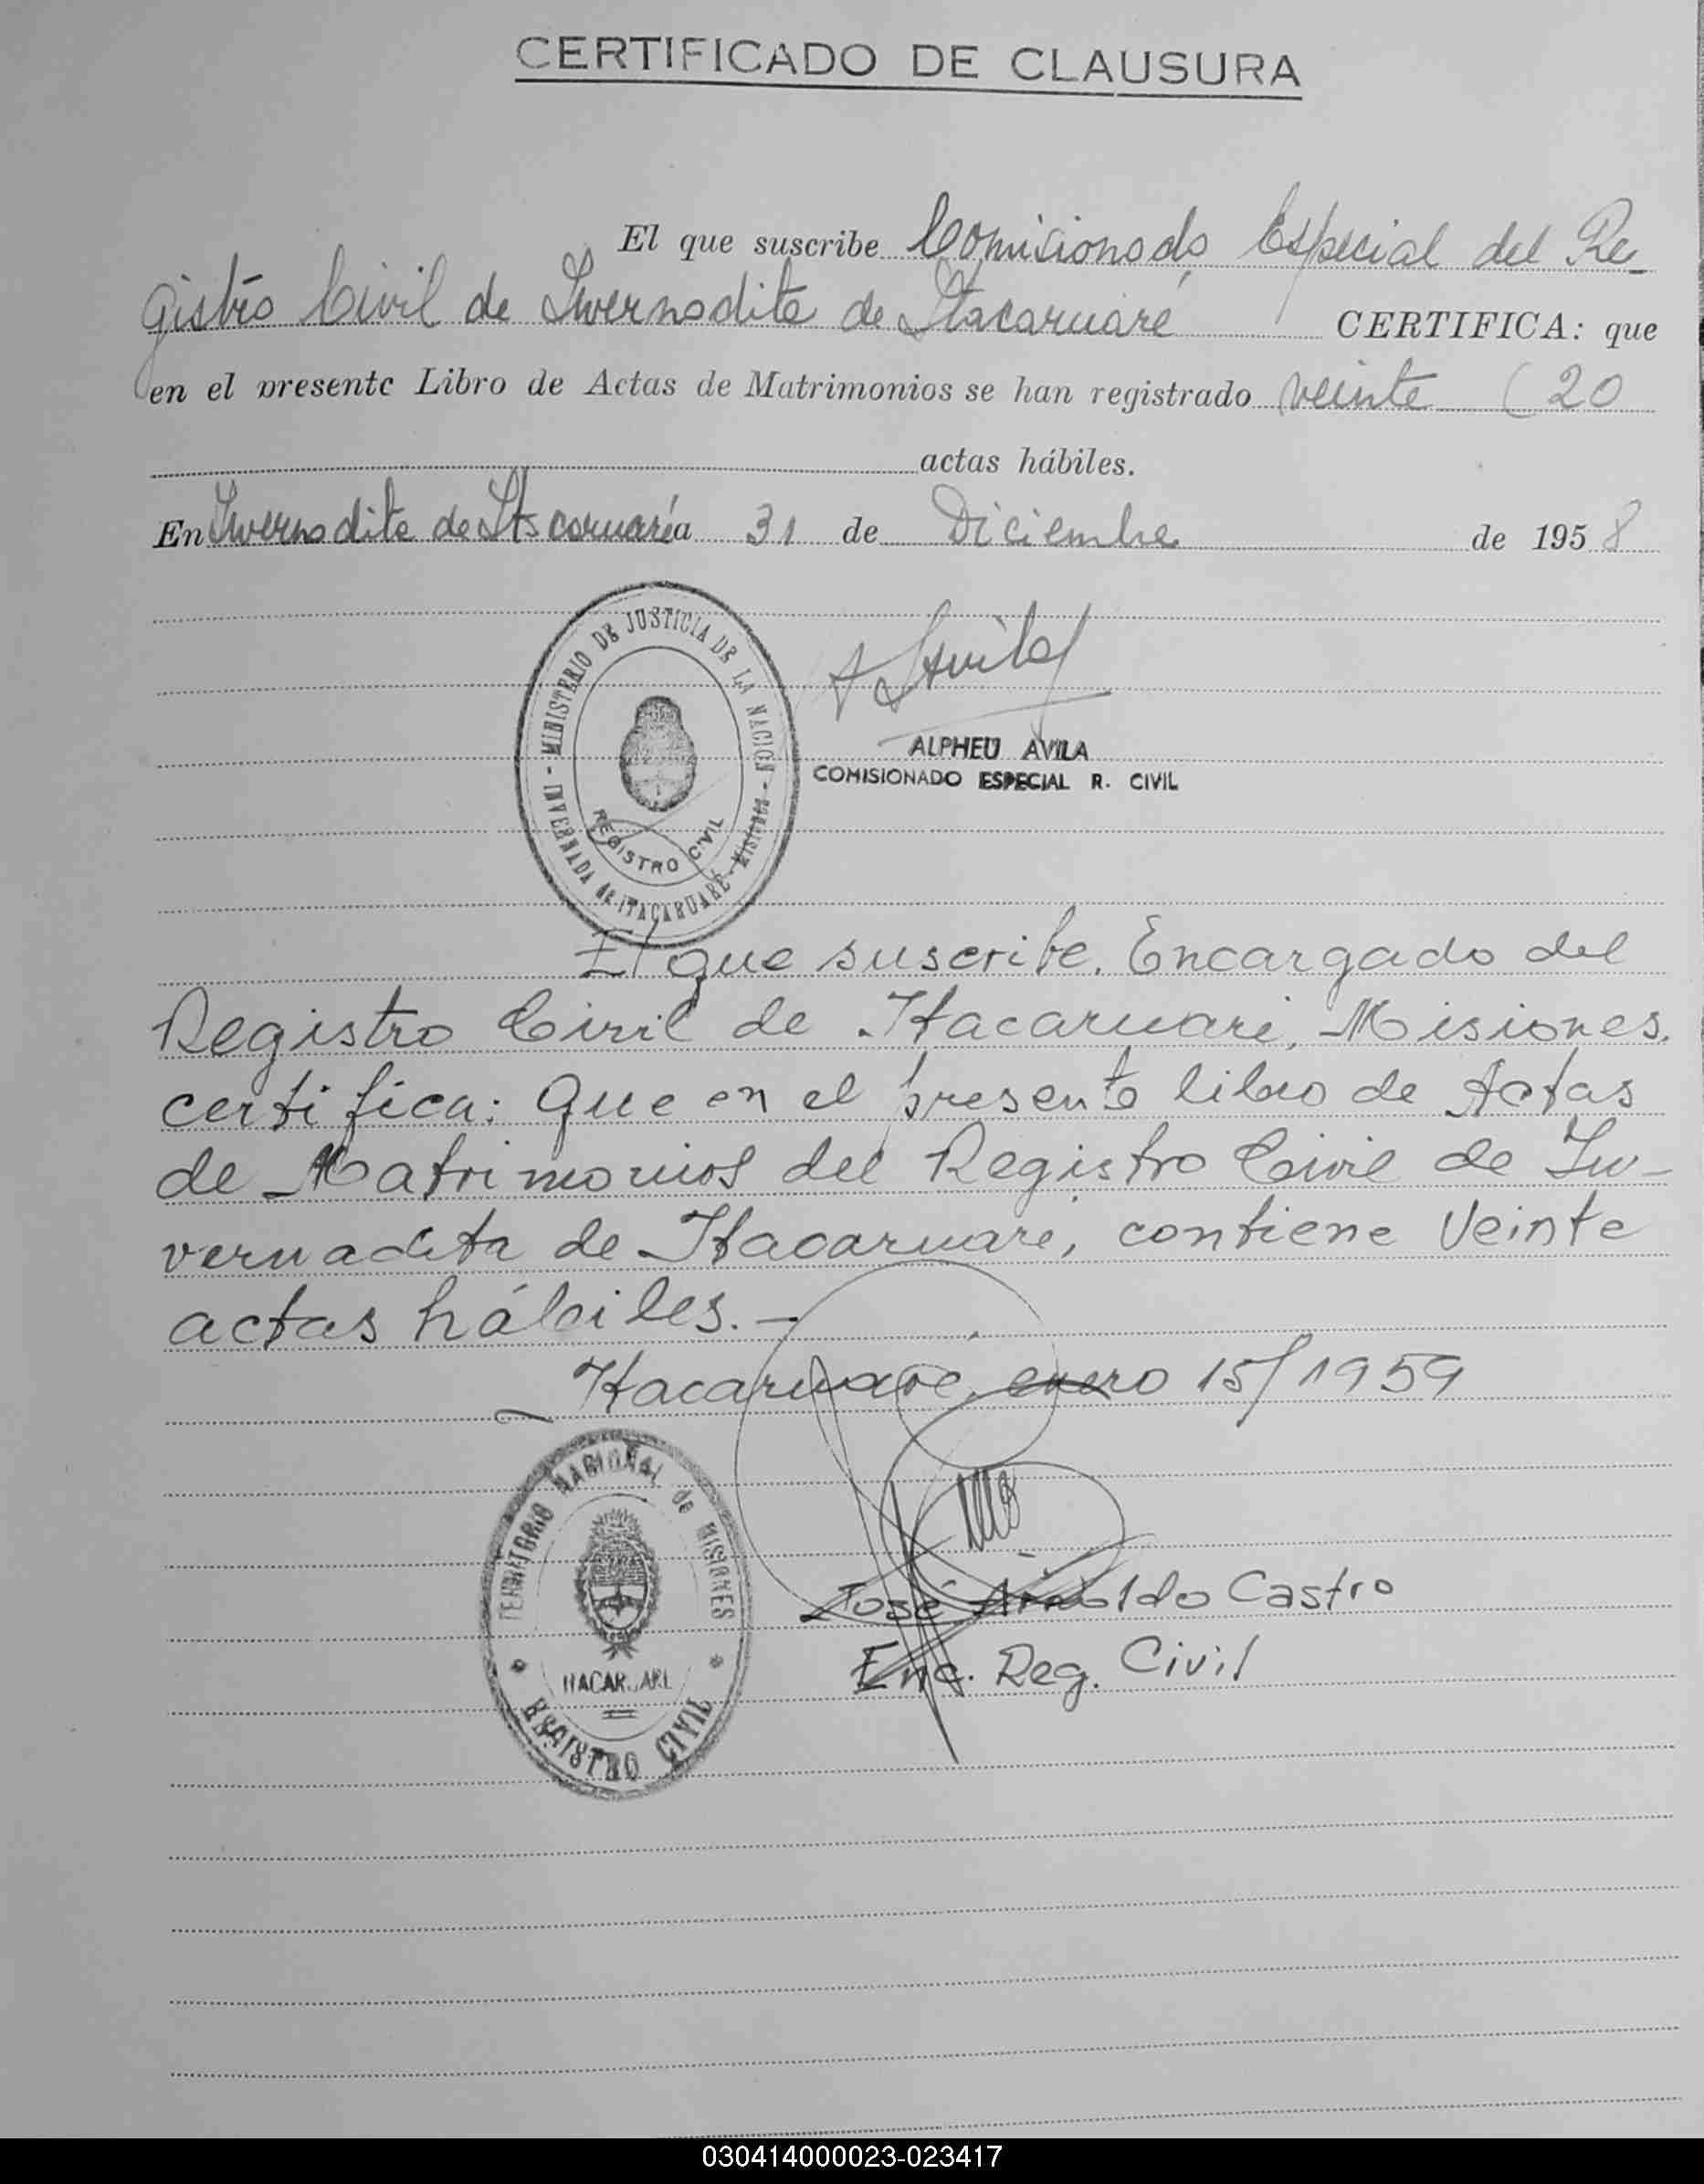 CERTIFICADO DE CLAUSURA
El que suscribe Comisionado Especial del Re-
gistro Civil de Invernadita de Itacaruaré CERTIFICA: que
en el presente Libro de Actas de Matrimonios se han registrado veinte (20
actas hábiles.
En Invernadita de Itacaruaré a 31 de Diciembre de 1958
MINISTERIO DE JUSTICIA DE LA NACION
REGISTRO CIVIL
INVERNADA DE ITACARUARÉ - Misiones
A Avila
ALPHEU AVILA
COMISIONADO ESPECIAL R. CIVIL
El que suscribe, Encargado del
Registro Civil de Itacaruaré, Misiones,
certifica: Que en el presente libro de Actas
de Matrimonios del Registro Civil de In-
vernadita de Itacaruaré, contiene Veinte
actas hábiles. -
Itacaruaré, enero 15/1959
TERRITORIO NACIONAL de MISIONES
ITACARUARE
REGISTRO CIVIL
José Castro
Enc. Reg. Civil
030414000023-023417